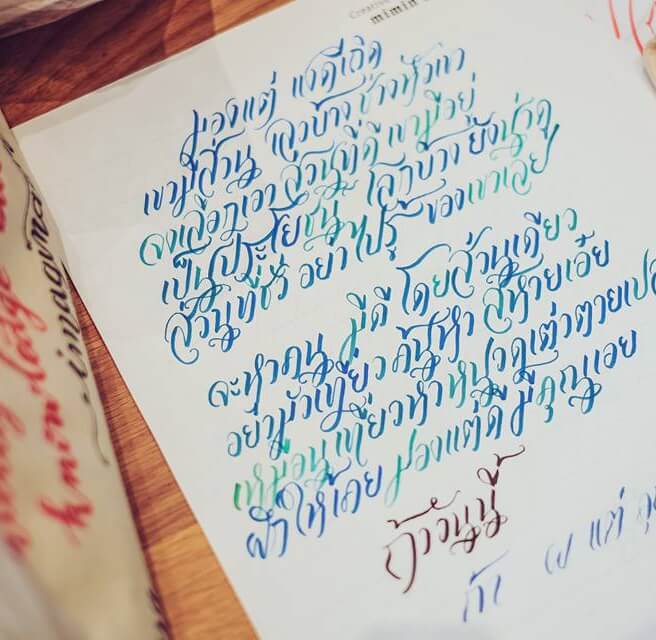 Creative
mimin
มองแต่ แง่ดีเถิด
เขามีส่วน เลวบ้าง ช่างหัวเขา
จงเลือกเอา ส่วนที่ดี เขามีอยู่
เป็นประโยชน์ โลกบ้าง ยังน่าดู
ส่วนที่ชั่ว อย่าไปรู้ ของเขาเลย
จะหาคน มีดี โดยส่วนเดียว
อย่ามัวเที่ยว ค้นหา สหายเอ๋ย
เหมือนเที่ยวหา หนวดเต่า ตายเปล
ฝึกให้เคย มองแต่ดี มีคุณเอย
ถ้าวันนี้
ถ้า แต่
knowledge
imagina